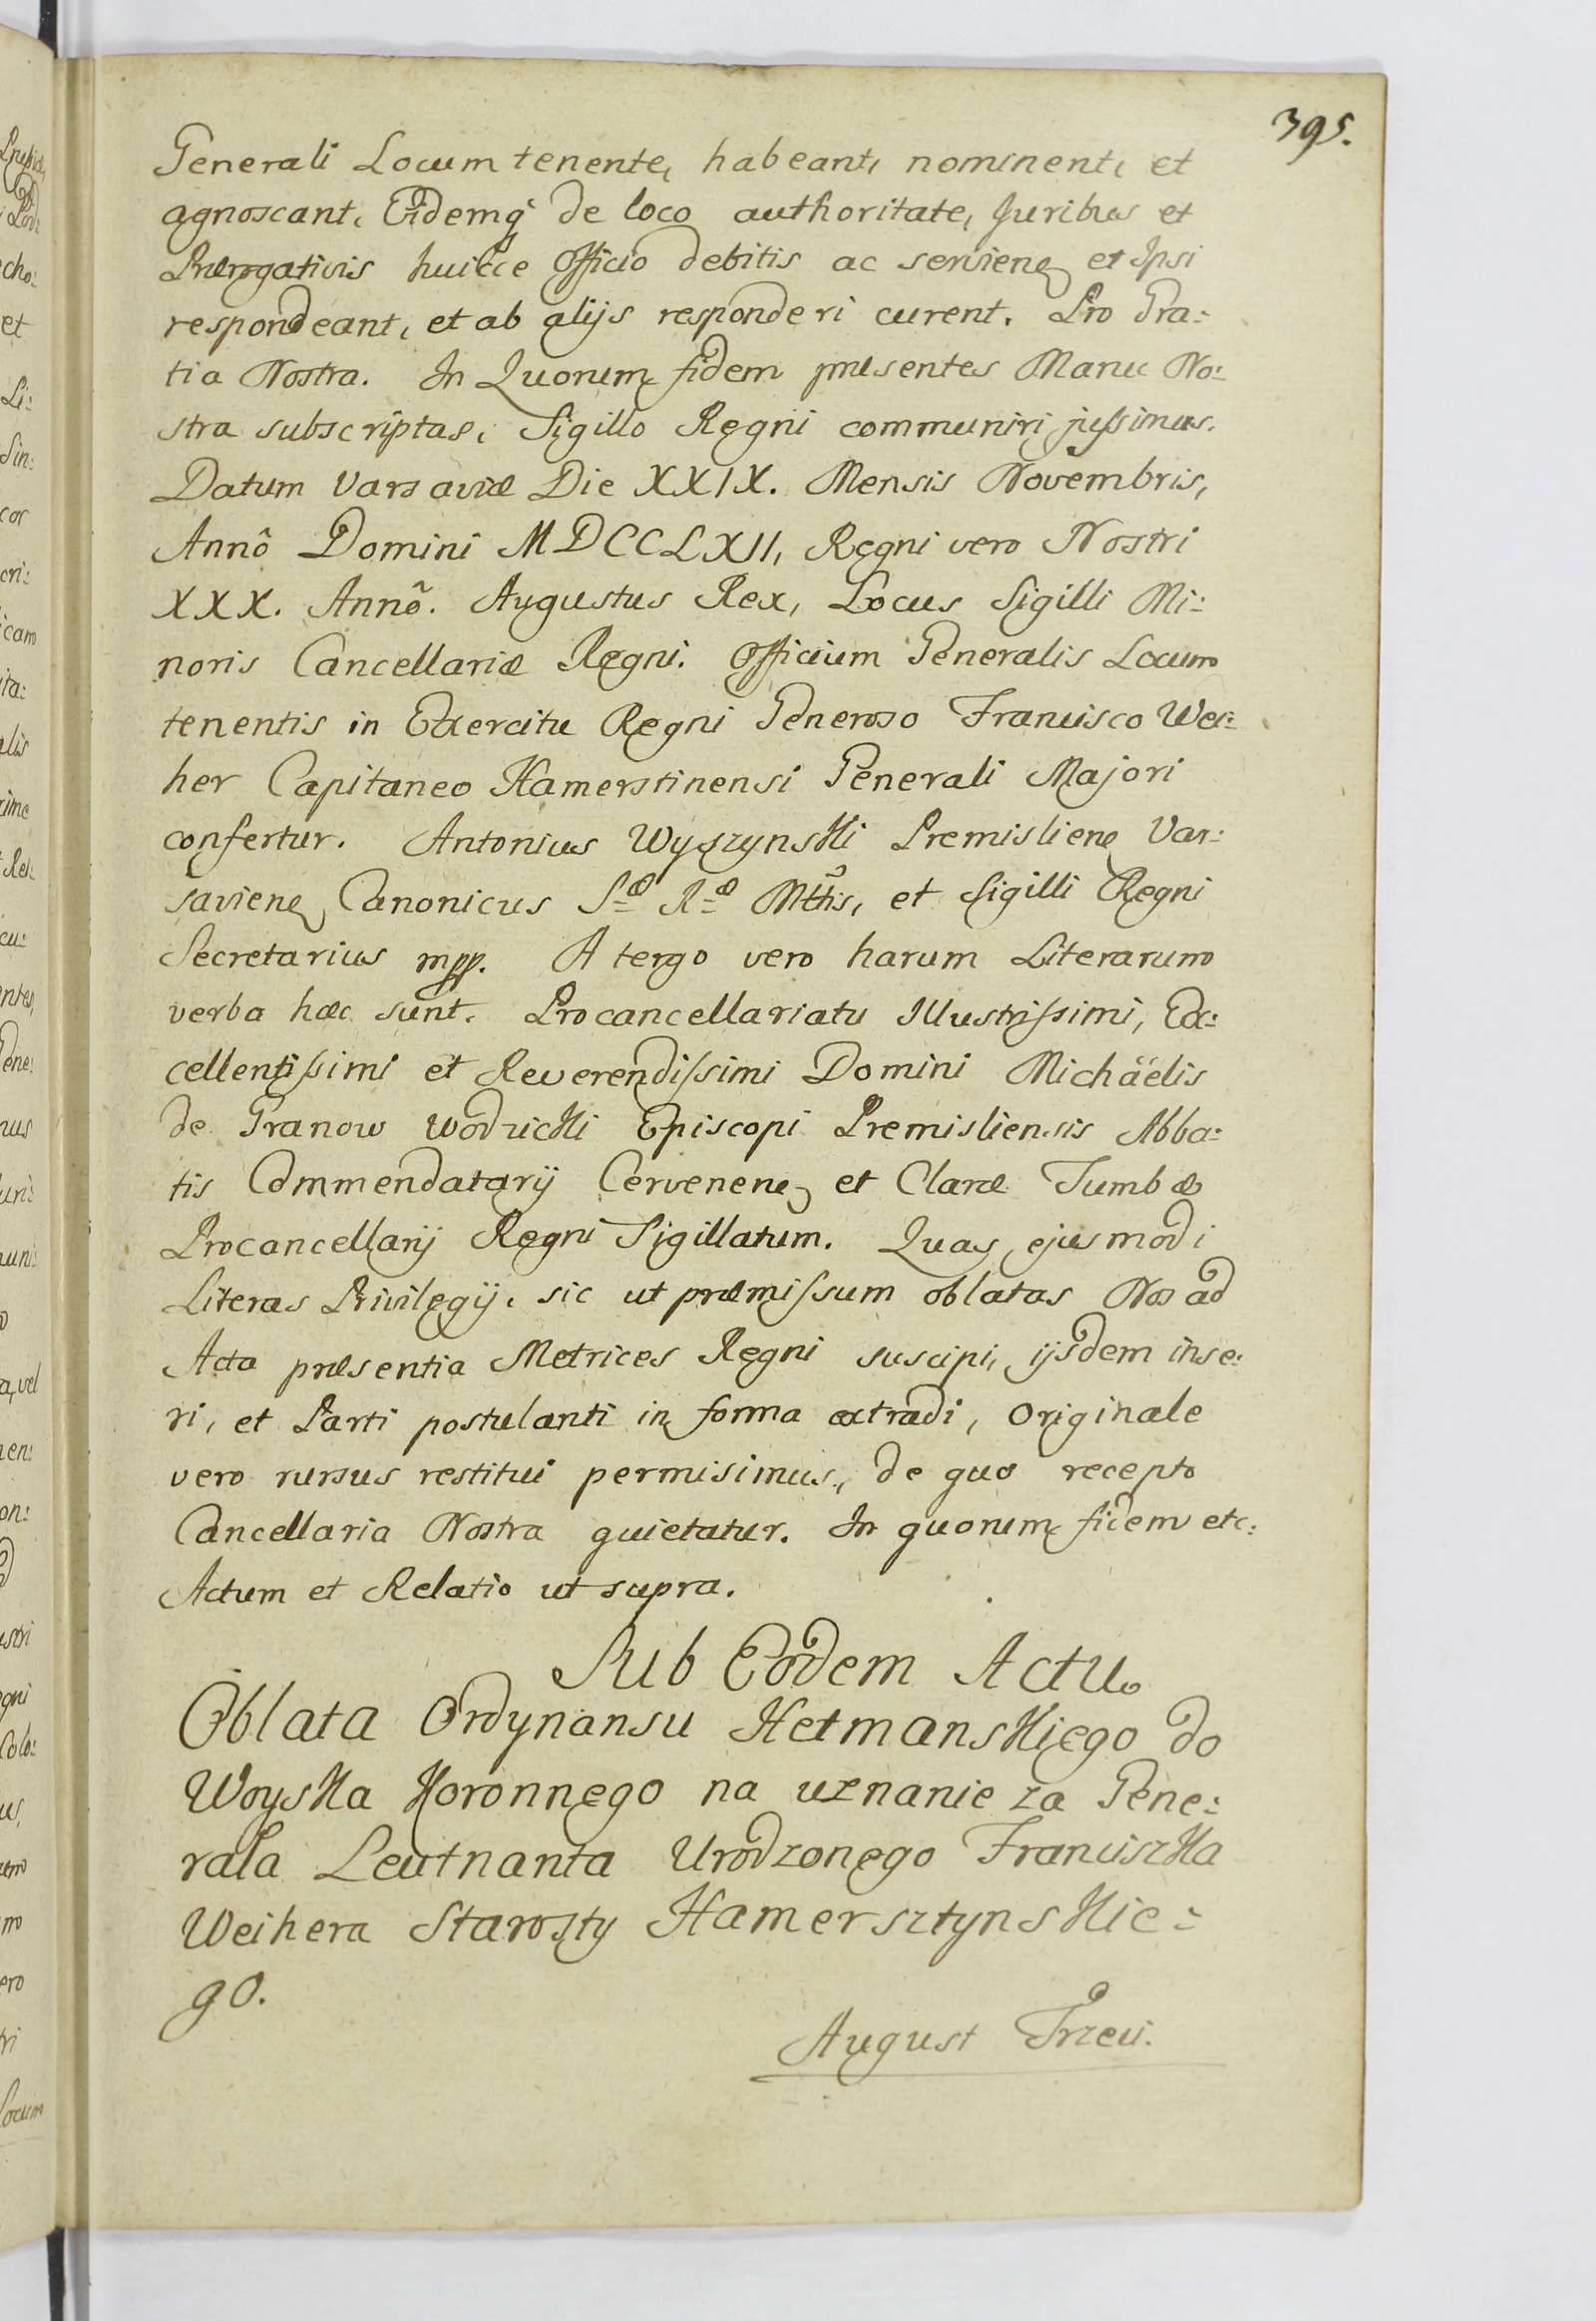 395.
Generali Locum tenente, habeant, nominent, et
agnoscant, Eidemq̀ de loco authoritate, Juribus et
Prærogativis huicce Officio debitis ac servienq et Ipsi
respondeant, et ab alijs responderi curent. Pro Gra:
tia Nostra. In Quorum fidem præsentes Manu No:
stra subscriptas, Sigillo Regni communiri jussimus.
Datum Varsaviæ Die XXIX. Mensis Novembris,
Annô Domini MDCCLXII, Regni vero Nostri
XXX. Annõ. Augustus Rex, Locus Sigilli Mi:
noris Cancellariæ Regni. Officium Generalis Locum
tenentis in Exercitu Regni Generoso Francisco Wei:
her Capitaneo Hamerstinensi Generali Majori
confertur. Antonius Wyszynski Premislienq Var:
savienq Canonicus S. R. Mttis, et Sigilli Regni
Secretarius mpp. A tergo vero harum Literarum
verba hæc sunt. Procancellariatu Illustrissimi, Ex:
cellentissimi et Reverendissimi Domini Michäelis
de Granow Wodzicki Episcopi Premisliensis Abba:
tis Commendatarij Cervenenq et Claræ Tumbæ
Procancellarij Regni Sigillatum. Quas ejusmodi
Literas Privilegij, sic ut præmissum oblatas Nos ad
Acta præsentia Metrices Regni suscipi, ijsdem inse:
ri, et Parti postulanti in forma extradi, Originale
vero rursus restitui permisimus, de quo recepto
Cancellaria Nostra quietatur. In quorum fidem etc:
Actum et Relatio ut supra.
Sub Eodem Actu.
Oblata Ordynansu Hetmanskiego do
Woyska Koronnego na uznanie za Gene:
rała Leutnanta Urodzonego Franciszka
Weihera Starosty Hamersztynskie:
go.
August Trzeci.